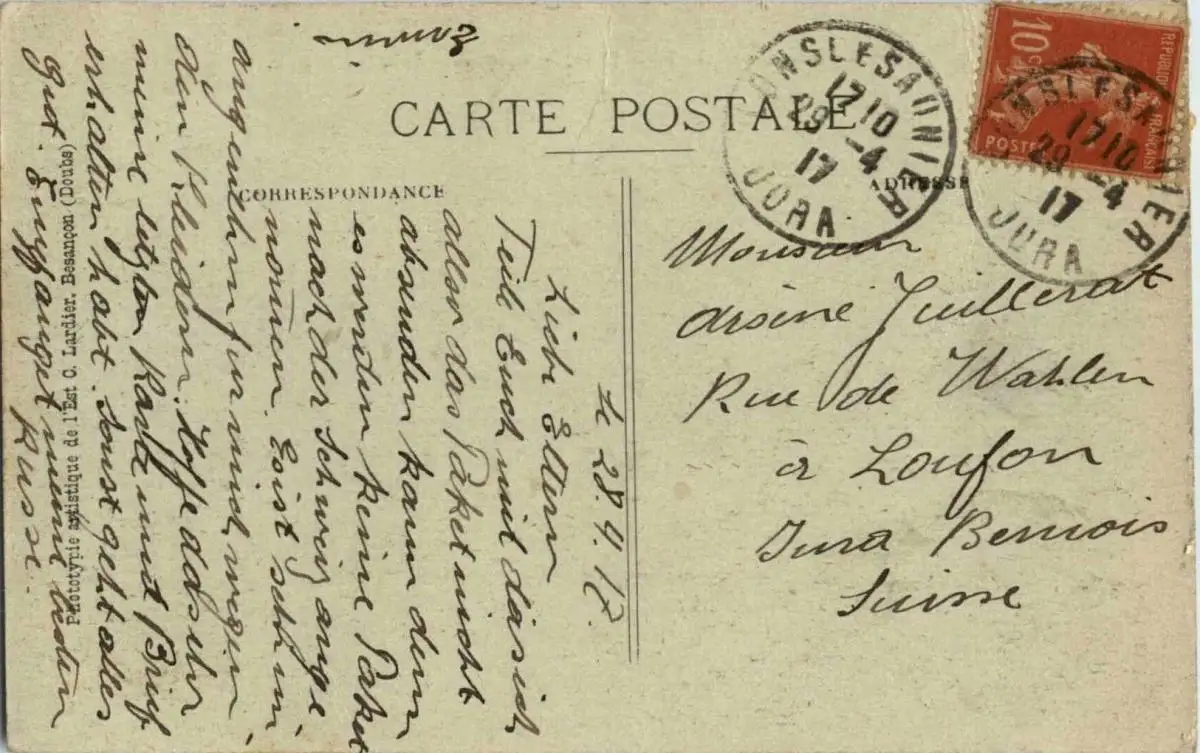 CARTE POSTALE
CORRESPONDANCE
ADRESSE
RÉPUBLIQUE FRANÇAISE
10c
POSTES
LONS LE SAUNIER
17 10
29 -4
17
JURA
LONS LE SAUNIER
17 10
29 -4
17
JURA
Monsieur
Arsène Juillerat
Rue de Wahlen
à Loufon
Jura Bernois
Suisse
Le 28.4.17.
Liebe Eltern
Teile Euch mit das ich
alles das Paket nicht
absenden kann denn
es werden keine Paket
nach der Schweiz ange
nomen. Es ist sehr un
angenehm für mich wegen
den Kleidern. Hoffe das Ihr
meine letzten Karte und Brief
erhalten habt. Sonst geht alles
gut. Empfanget meine besten
Küsse.
Phototypie artistique de l'Est C. Lardier, Besançon (Doubs)